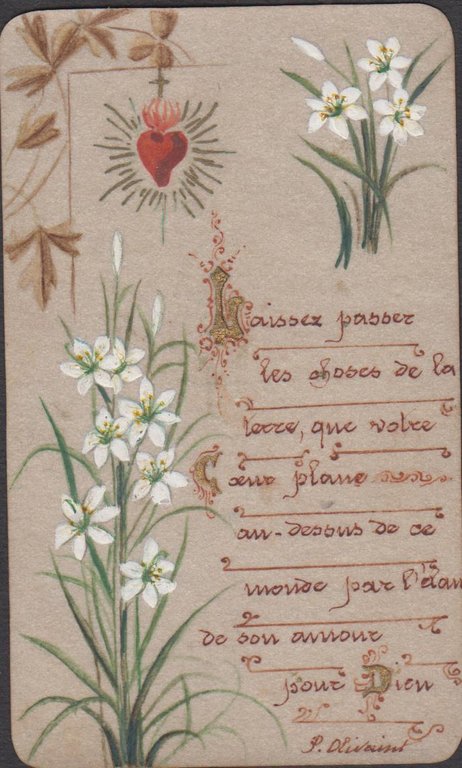 Laissez passer
les choses de la
terre, que votre
Cœur plane
au-dessus de ce
monde par l'élan
de son amour
pour Dieu
P. Olivaint